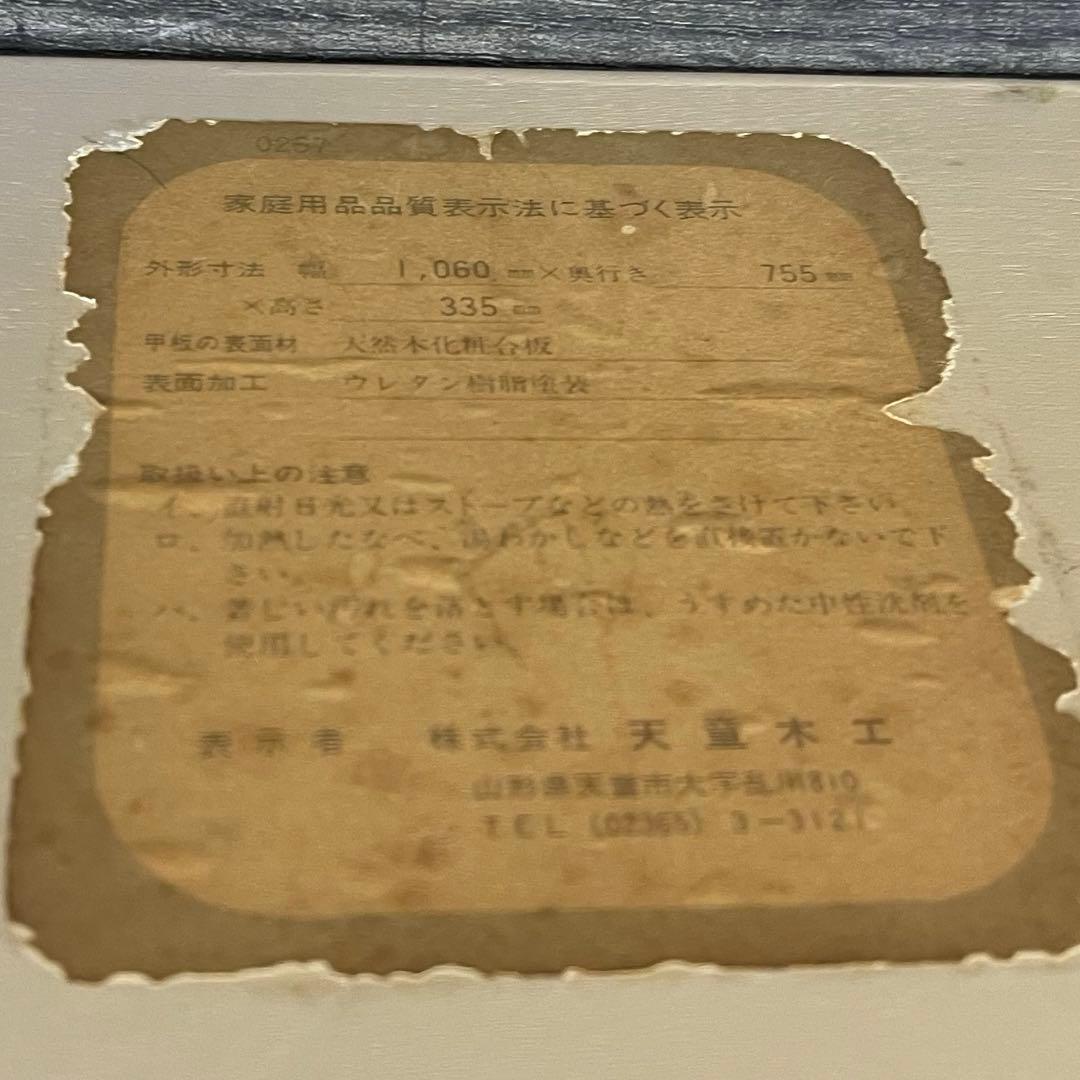 0267
家庭用品品質表示法に基づく表示
外形寸法 幅 1,060 mm×奥行き 755 mm
×高さ 335 mm
甲板の表面材 天然木化粧合板
表面加工 ウレタン樹脂塗装
取扱い上の注意
イ、直射日光又はストーブなどの熱をさけて下さい。
ロ、加熱したなべ、湯わかしなどを直接置かないで下
さい。
ハ、著しい汚れを落とす場合は、うすめた中性洗剤を
使用してください。
表示者 株式会社 天童木工
山形県天童市大字乱川810
TEL (02365) 3-3121